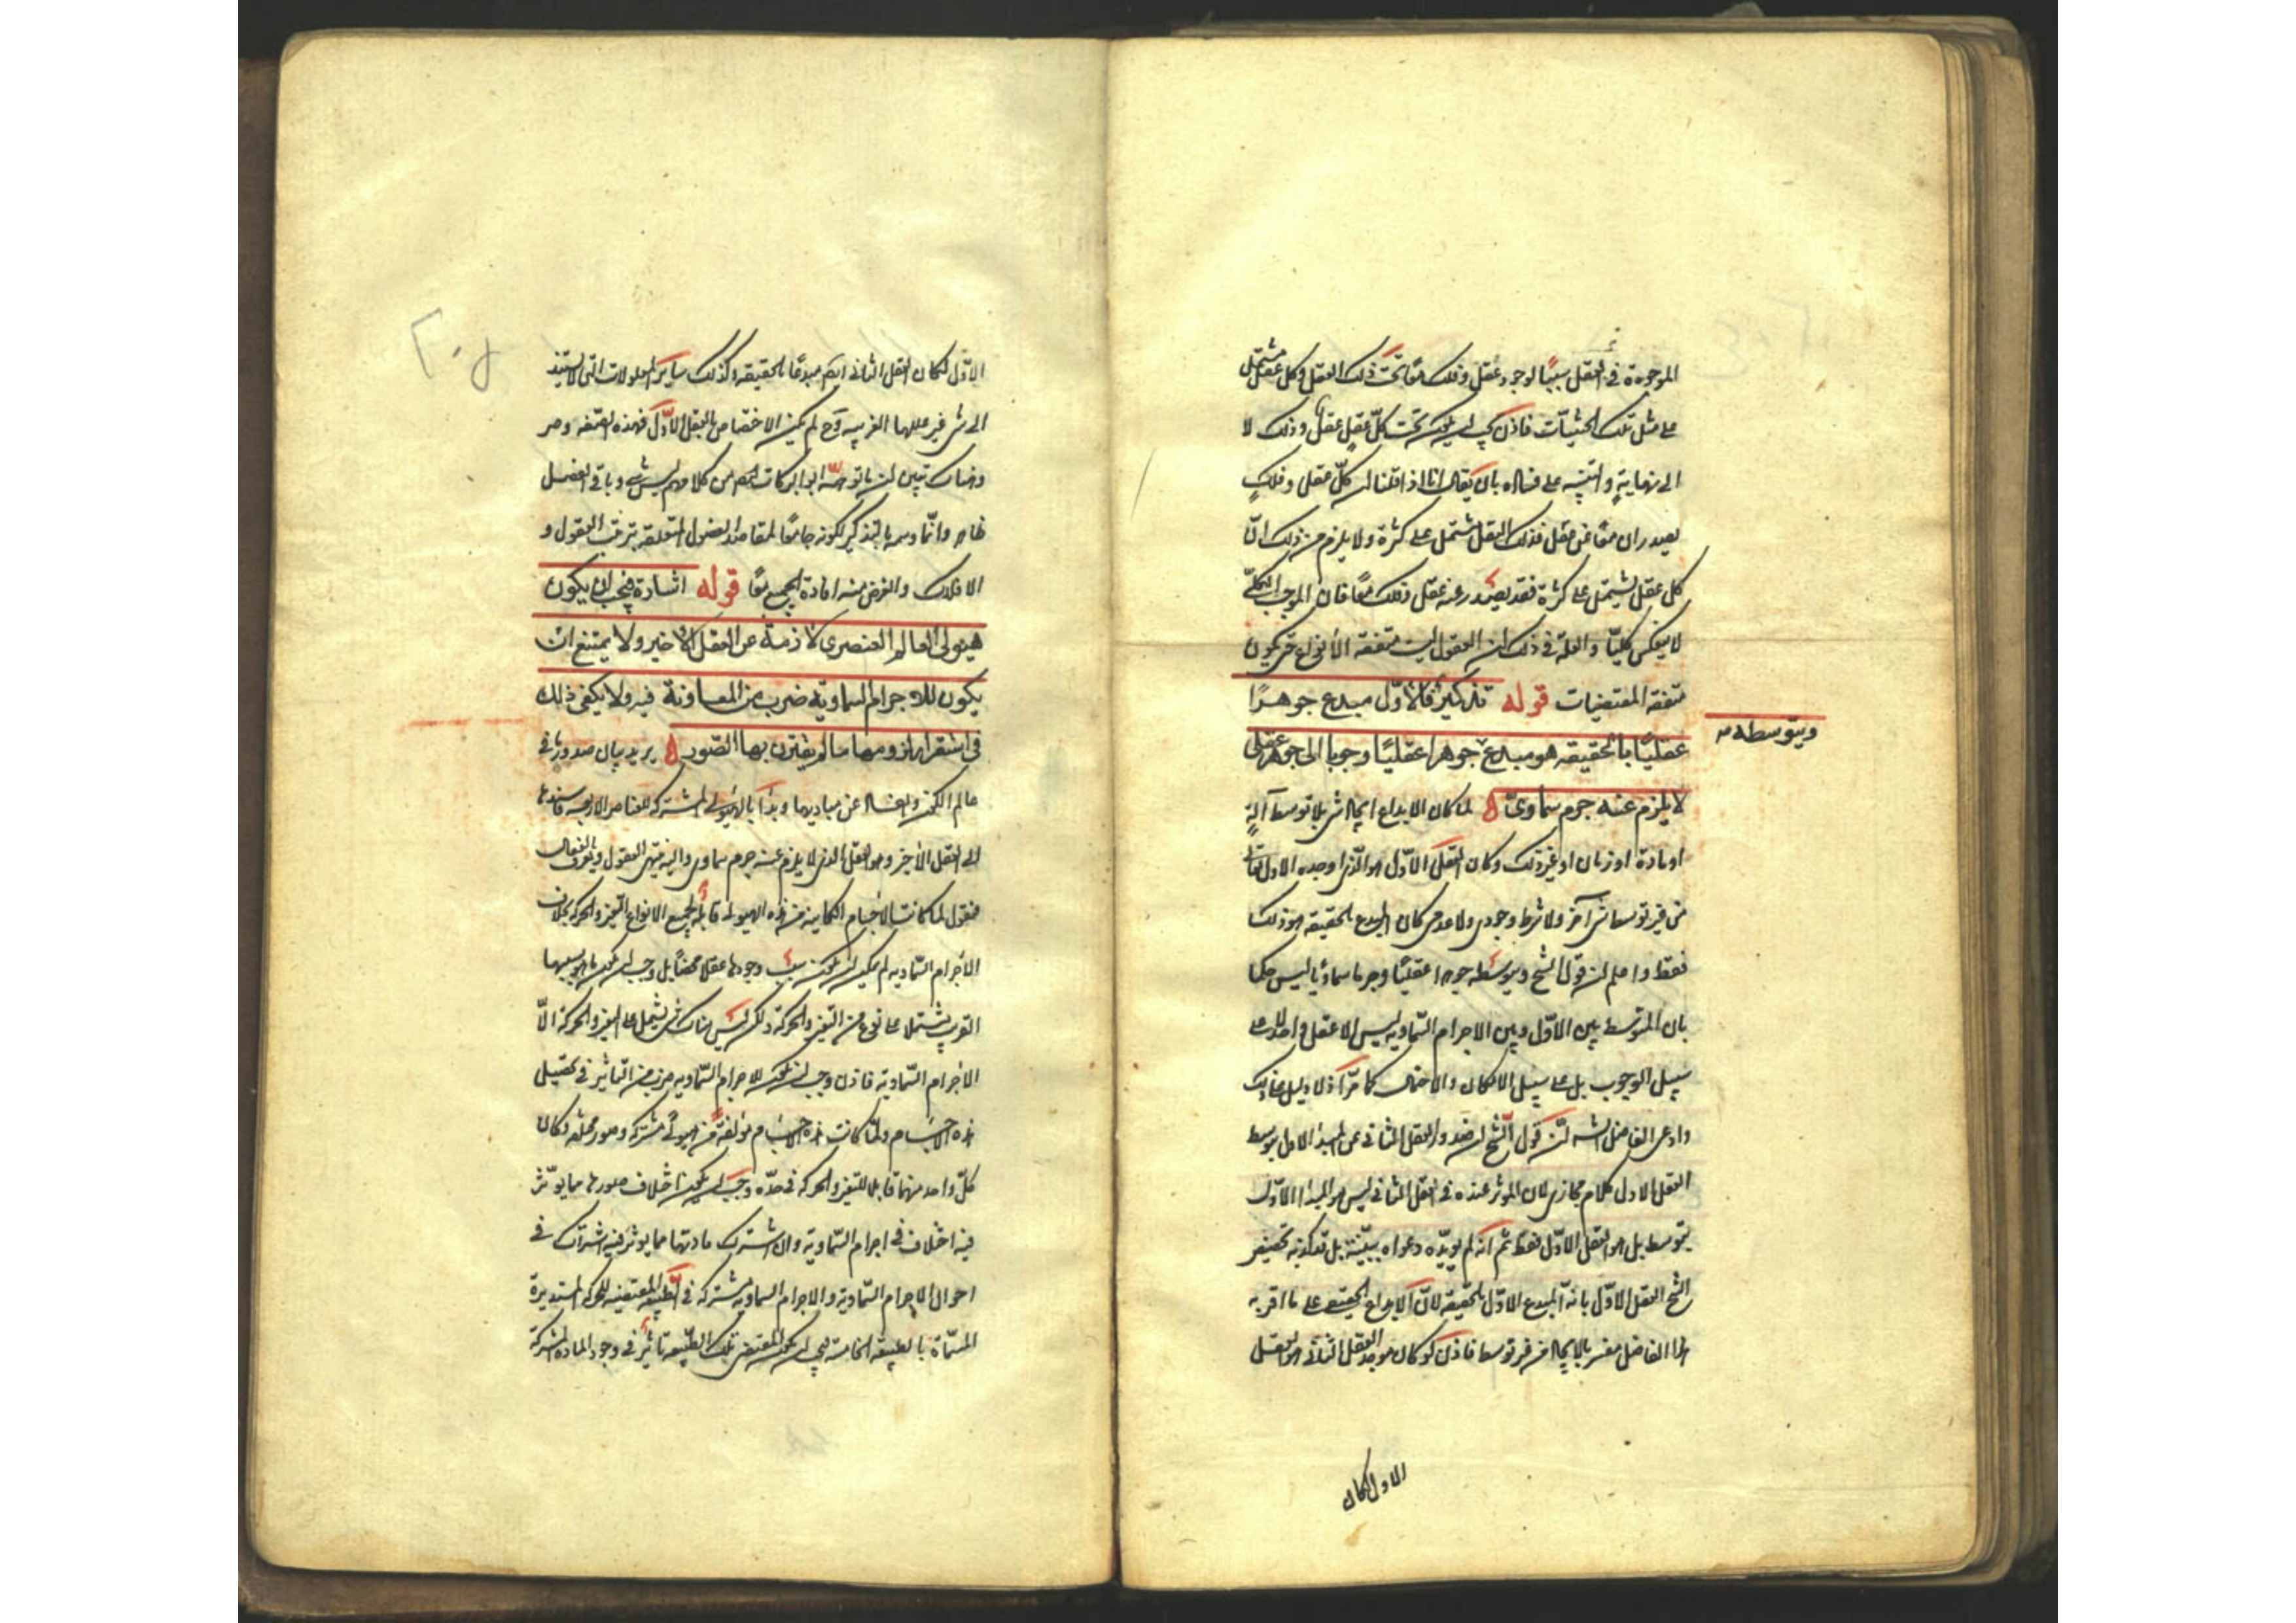 الموجودة في العقل سببًا لوجود عقل وفلك معًا تحت ذلك العقل وكل عقل مشتمل
على مثل تلك الحيثيّات فاذن يجب ان يكون تحت كلّ عقل عقل وفلك لا
الى نهاية والتنبيه على فساده بان يقال انا اذا قلنا ان كلّ عقل وفلك
يصدران معًا عن عقل فذلك العقل مشتمل على كثرة ولا يلزم من ذلك انّ
كل عقل يشتمل على كثرة فقد يصدر عنه عقل وفلك معًا فان الموجب الكلّى
لا ينعكس كليّا والعلة في ذلك ان العقول ليست متفقة الأنواع حتى يكون
متفقة المقتضيات قوله تذكير فالاوّل مبدع جوهرًا
ويتوسطه
عقليّا بالحقيقه هو مبدع جوهرا عقليّا وجوبا الى جوهر عقلى
لا يلزم عنه جرم سماوىّ ه لما كان الابداع ايجاد شي بلا توسط آلة
او مادة او زمان او غير ذلك وكان العقل الاوّل هو الذي اوجده الاول تعالى
من غير توسط شي آخر ولا شرط وجودى ولا عدمى كان المبدع بالحقيقه هو ذلك
فقط واعلم ان قول الشيخ وبتوسطه جوهرا عقليّا وجرما سماويّا ليس حكما
بان المتوسط بين الاوّل وبين الاجرام السّماويه ليس الا عقل واحد لا على
سبيل الوجوب بل على سبيل الامكان والاحتمال كما مرّ اذ لا دليل على ذلك
وادعى الفاضل الشه انّ قول الشيخ ان صدور العقل الثاني عن المبدا الاول بتوسط
العقل الاول كلام مجازي لان الموثر عنده في العقل الثاني ليس هو المبدا الاوّل
بتوسط بل هو العقل الاوّل فقط ثم انه لم يويّده دعواه ببيّنة بل تكذبه تخصيص
الشيخ العقل الاوّل بانه المبدع الاوّل بالحقيقه لانّ الابداع الحقيقى على ما اقر به
هذا الفاضل مفسر بالايجاد من غير توسط فاذن لو كان موجد العقل الثاني هو العقل
الاول لكان
الاوّل لكان العقل الثاني ايضا مبدعًا بالحقيقه وكذلك ساير المعلولات التي لا تستند
الى شي غير عللها القريبه وح لم يكن الاختصاص بالعقل الاوّل فهذه الصّفه وجه
وهناك تبين ان ما توهمّه ابو البركات ايضا من كلامهم ليس بشي وباقي الفصل
ظاهر وانّما وسمه بالتذكير لكونه جامعًا لمقاصد الفصول المتعلقة بترتيب العقول و
الافلاك والغرض منه افادة الجميع معًا قوله اشارة فيجب ان يكون
هيولى العالم العنصرى لازمة عن العقل الاخير ولا يمتنع ان
يكون للاجرام السماويّة ضرب من المعاونة فيه ولا يكفى ذلك
فى استقرار لزومها ما لم يقترن بها الصّور ه يريد بيان صدور ما في
عالم الكون والفساد عن مباديها وبدأ بالهيولى المشتركه للعناصر الاربعه فاسندها
الى العقل الأخير وهو العقل الذي لا يلزم عنه جرم سماوي واليه ينتهى العقول ويعرف بالفعال
فنقول لما كانت الاجسام الكاينة من هذه الهيولى قابلة لجميع الانواع التغير والحركة بخلاف
الاجرام السّماويه لم يكن ان يكون سبب وجودها عقلا محضًا بل وجب ان يكون ما هو سببها
القريب يشتمل على نوع من التغير والحركة ولكن ليس هناك شي يشتمل على التغير والحركة الّا
الأجرام السّماوية فاذن وجب ان يكون للاجرام السّماويه ضرب من التاثير في تحصيل
هذه الاجسام ولمّا كانت هذه الاجسام مولفة من هيولى مشتركه وصور مختلفه وكان
كلّ واحد منهما قابلا للتغير والحركه في حدّه وجب ان يكون اختلاف صورها مما يوثّر
فيه اختلاف في اجرام السّماوية والاشتراك مادتها مما يوثر فيه اشتراك في
احوال الاجرام السّماوية والاجرام السماوية مشتركة في الطبيعة المقتضيه للحركه المستديرة
المسمّاة بالطبيعه الخامسة فيجب ان يكون لمقتضى تلك الطّبيعه تاثير في وجود الماده المشتركة